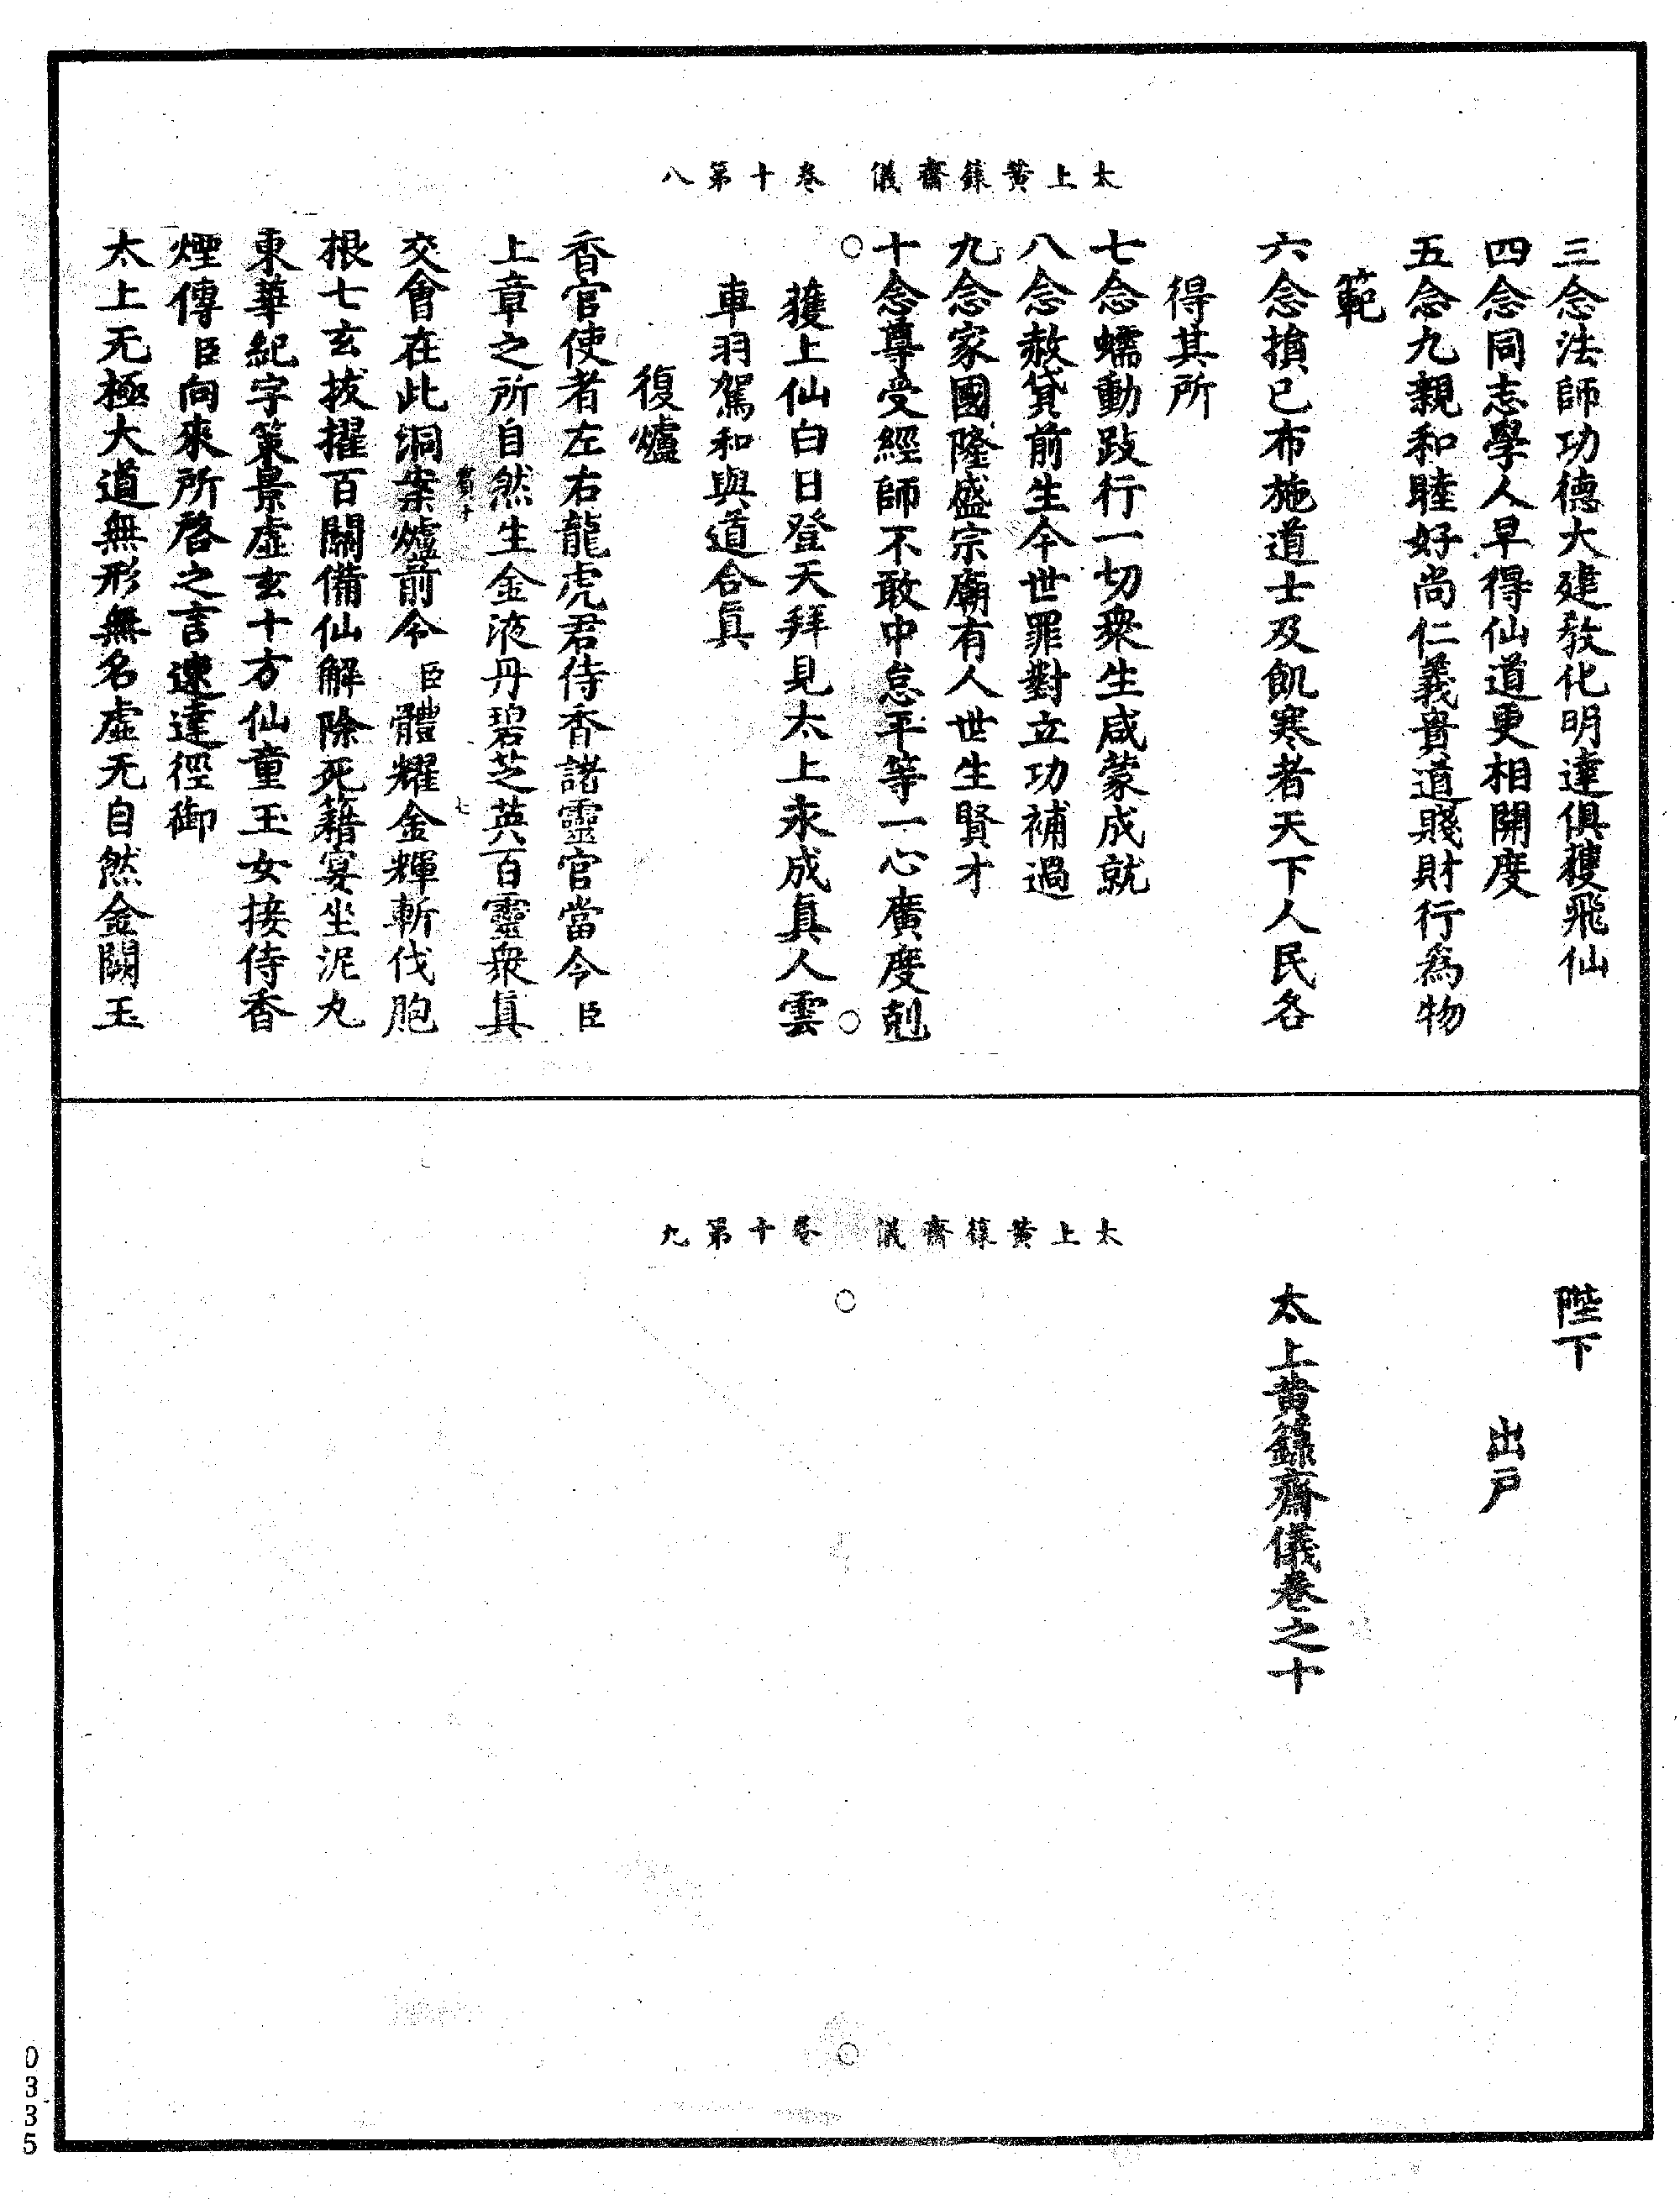 太上黃籙齋儀　卷十第八
三念法師功德大建教化明達俱獲飛仙
四念同志學人早得仙道更相開度
五念九親和睦好尚仁義貴道賤財行為物
範
六念損己布施道士及飢寒者天下人民各
得其所
七念蠕動跂行一切衆生咸蒙成就
八念赦貸前生今世罪對立功補過
九念家國隆盛宗廟有人世生賢才
十念尊受經師不敢中怠平等一心廣度剋
獲上仙白日登天拜見太上永成真人雲
車羽駕和與道合真
復爐
香官使者左右龍虎君侍香諸靈官當今臣
上章之所自然生金液丹碧芝英百靈衆真
交會在此洞案爐前令臣體耀金輝斬伐胞
根七玄拔擢百關備仙解除死籍宴坐泥丸
東華紀字策景虛玄十方仙童玉女接侍香
煙傳臣向來所啓之言速達徑御
太上无極大道無形無名虛无自然金闕玉
太上黃籙齋儀　卷十第九
陛下
出戶
太上黃籙齋儀卷之十
0335